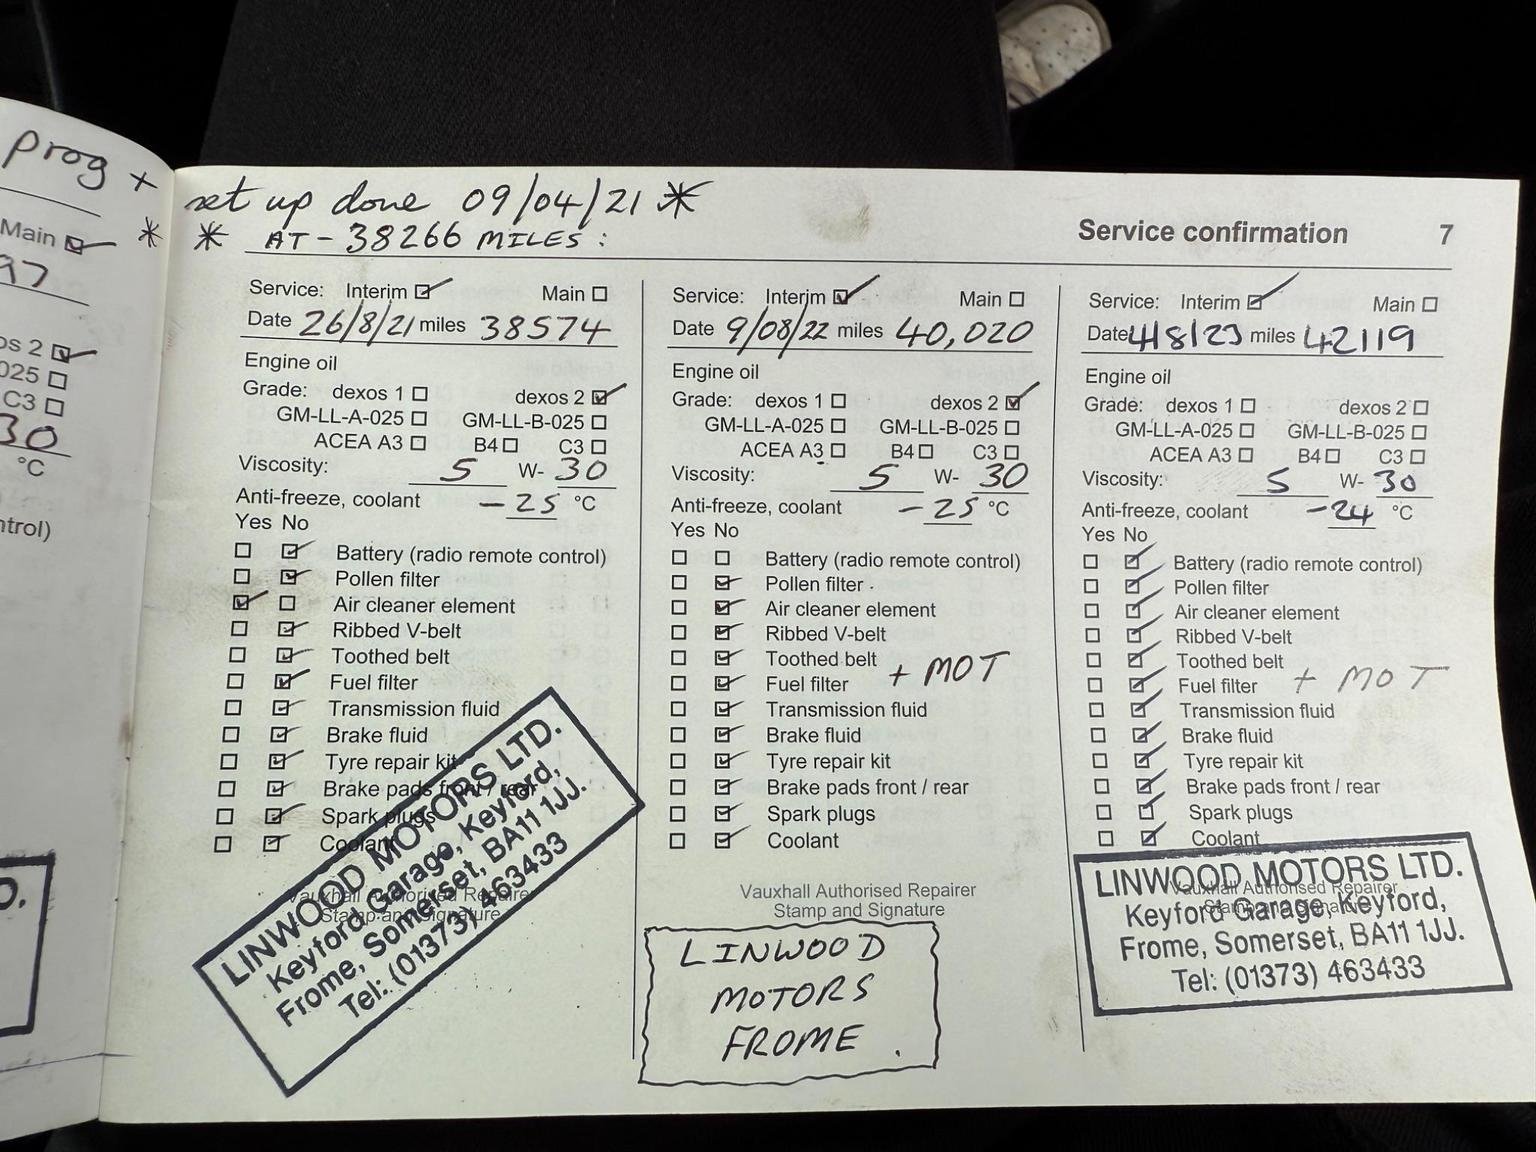 prog +
Main ☑
97
os 2 ☑
025 ☐
C3 ☐
30
°C
ntrol)
O.
set up done 09/04/21 *
* * AT - 38266 MILES :
Service confirmation 7
Service: Interim ☑ Main ☐
Date 26/8/21 miles 38574
Engine oil
Grade: dexos 1 ☐ dexos 2 ☑
GM-LL-A-025 ☐ GM-LL-B-025 ☐
ACEA A3 ☐ B4 ☐ C3 ☐
Viscosity: 5 W- 30
Anti-freeze, coolant -25 °C
Yes No
☐ ☑ Battery (radio remote control)
☐ ☑ Pollen filter
☑ ☐ Air cleaner element
☐ ☑ Ribbed V-belt
☐ ☑ Toothed belt
☐ ☑ Fuel filter
☐ ☑ Transmission fluid
☐ ☑ Brake fluid
☐ ☑ Tyre repair kit
☐ ☑ Brake pads front / rear
☐ ☑ Spark plugs
☐ ☑ Coolant
Vauxhall Authorised Repairer
Stamp and Signature
LINWOOD MOTORS LTD.
Keyford Garage, Keyford,
Frome, Somerset, BA11 1JJ.
Tel: (01373) 463433
Service: Interim ☑ Main ☐
Date 9/08/22 miles 40,020
Engine oil
Grade: dexos 1 ☐ dexos 2 ☑
GM-LL-A-025 ☐ GM-LL-B-025 ☐
ACEA A3 ☐ B4 ☐ C3 ☐
Viscosity: 5 W- 30
Anti-freeze, coolant -25 °C
Yes No
☐ ☐ Battery (radio remote control)
☐ ☑ Pollen filter
☐ ☑ Air cleaner element
☐ ☑ Ribbed V-belt
☐ ☑ Toothed belt
+ MOT
☐ ☑ Fuel filter
☐ ☑ Transmission fluid
☐ ☑ Brake fluid
☐ ☑ Tyre repair kit
☐ ☑ Brake pads front / rear
☐ ☑ Spark plugs
☐ ☑ Coolant
Vauxhall Authorised Repairer
Stamp and Signature
LINWOOD
MOTORS
FROME .
Service: Interim ☑ Main ☐
Date 4/8/23 miles 42119
Engine oil
Grade: dexos 1 ☐ dexos 2 ☐
GM-LL-A-025 ☐ GM-LL-B-025 ☐
ACEA A3 ☐ B4 ☐ C3 ☐
Viscosity: 5 W- 30
Anti-freeze, coolant -24 °C
Yes No
☐ ☑ Battery (radio remote control)
☐ ☑ Pollen filter
☐ ☑ Air cleaner element
☐ ☑ Ribbed V-belt
☐ ☑ Toothed belt
☐ ☑ Fuel filter + MOT
☐ ☑ Transmission fluid
☐ ☑ Brake fluid
☐ ☑ Tyre repair kit
☐ ☑ Brake pads front / rear
☐ ☑ Spark plugs
☐ ☑ Coolant
Vauxhall Authorised Repairer
Stamp and Signature
LINWOOD MOTORS LTD.
Keyford Garage, Keyford,
Frome, Somerset, BA11 1JJ.
Tel: (01373) 463433